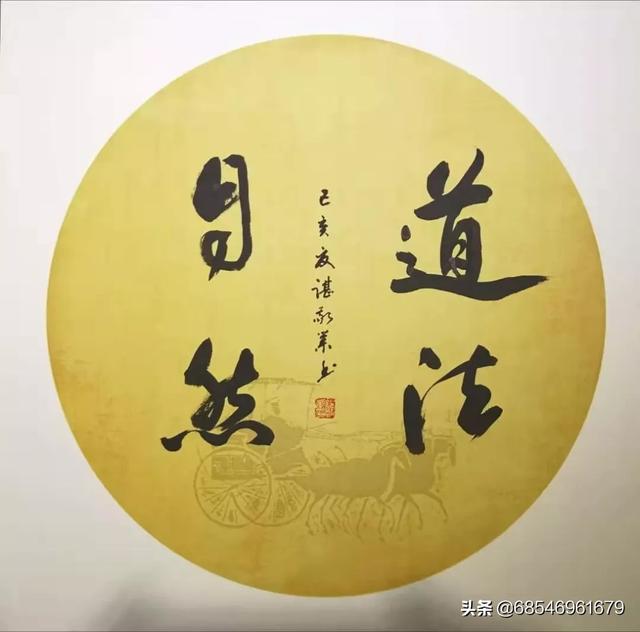 道法
自然
己亥夏谌業书
头条 @68546961679